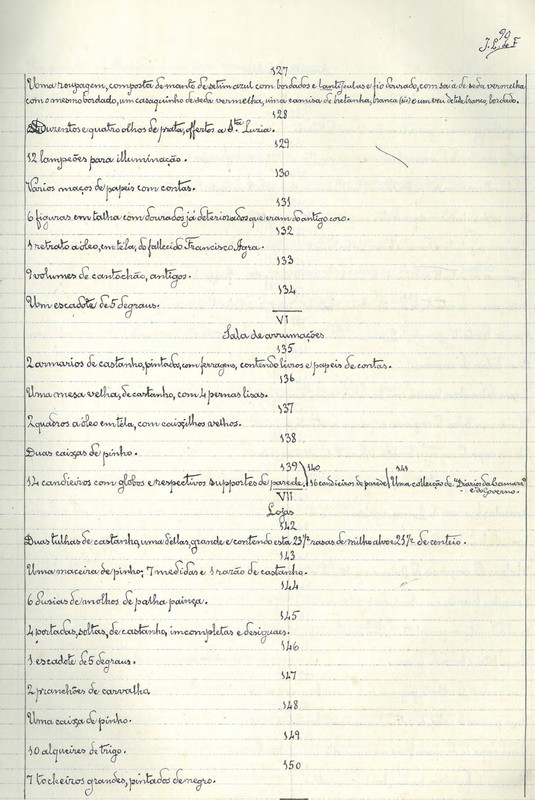 90
J. L. de F
127
Uma roupagem, composta de manto de setim azul com bordados e lantijoulas e fio dourado, com saia de seda vermelha
com o mesmo bordado, um casaquinho de seda vermelha, uma camisa de bretanha, branca (sic) e um veu de tule branco, bordado.
128
Duzentos e quatro olhos de prata, offertos a Sta Luzia.
129
12 lampeões para illuminação.
130
Varios maços de papeis com contas.
131
6 figuras em talha com dourados já deteriorados que eram do antigo coro.
132
1 retrato a óleo, em téla, do fallecido Francisco Agra.
133
9 volumes de cantochão, antigos.
134
Um escadote de 5 degraus.
VI
Sala de arrumações
135
2 armarios de castanho, pintados, com ferragens, contendo livros e papeis de contas.
136
Uma mesa velha, de castanho, com 4 pernas lisas.
137
2 quadros a óleo em téla, com caixilhos velhos.
138
Duas caixas de pinho.
139 140 141
14 candieiros com globos e respectivos supportes de parede. 16 candieiros de parede Uma collecção de "Diarios da Camara"
e do Governo.
VII
Lojas
142
Duas tulhas de castanho, uma dellas, grande e contendo esta 25 1/2 rasas de milho alvo e 25 1/2 de centeio.
143
Uma maceira de pinho; 7 medidas e 1 razão de castanho.
144
6 dusias de molhos de palha painça.
145
4 portadas, soltas, de castanho, imcompletas e desiguaes.
146
1 escadote de 5 degraus.
147
2 pranchões de carvalho
148
Uma caixa de pinho.
149
10 alqueires de trigo.
150
7 tocheiros grandes, pintados de negro.